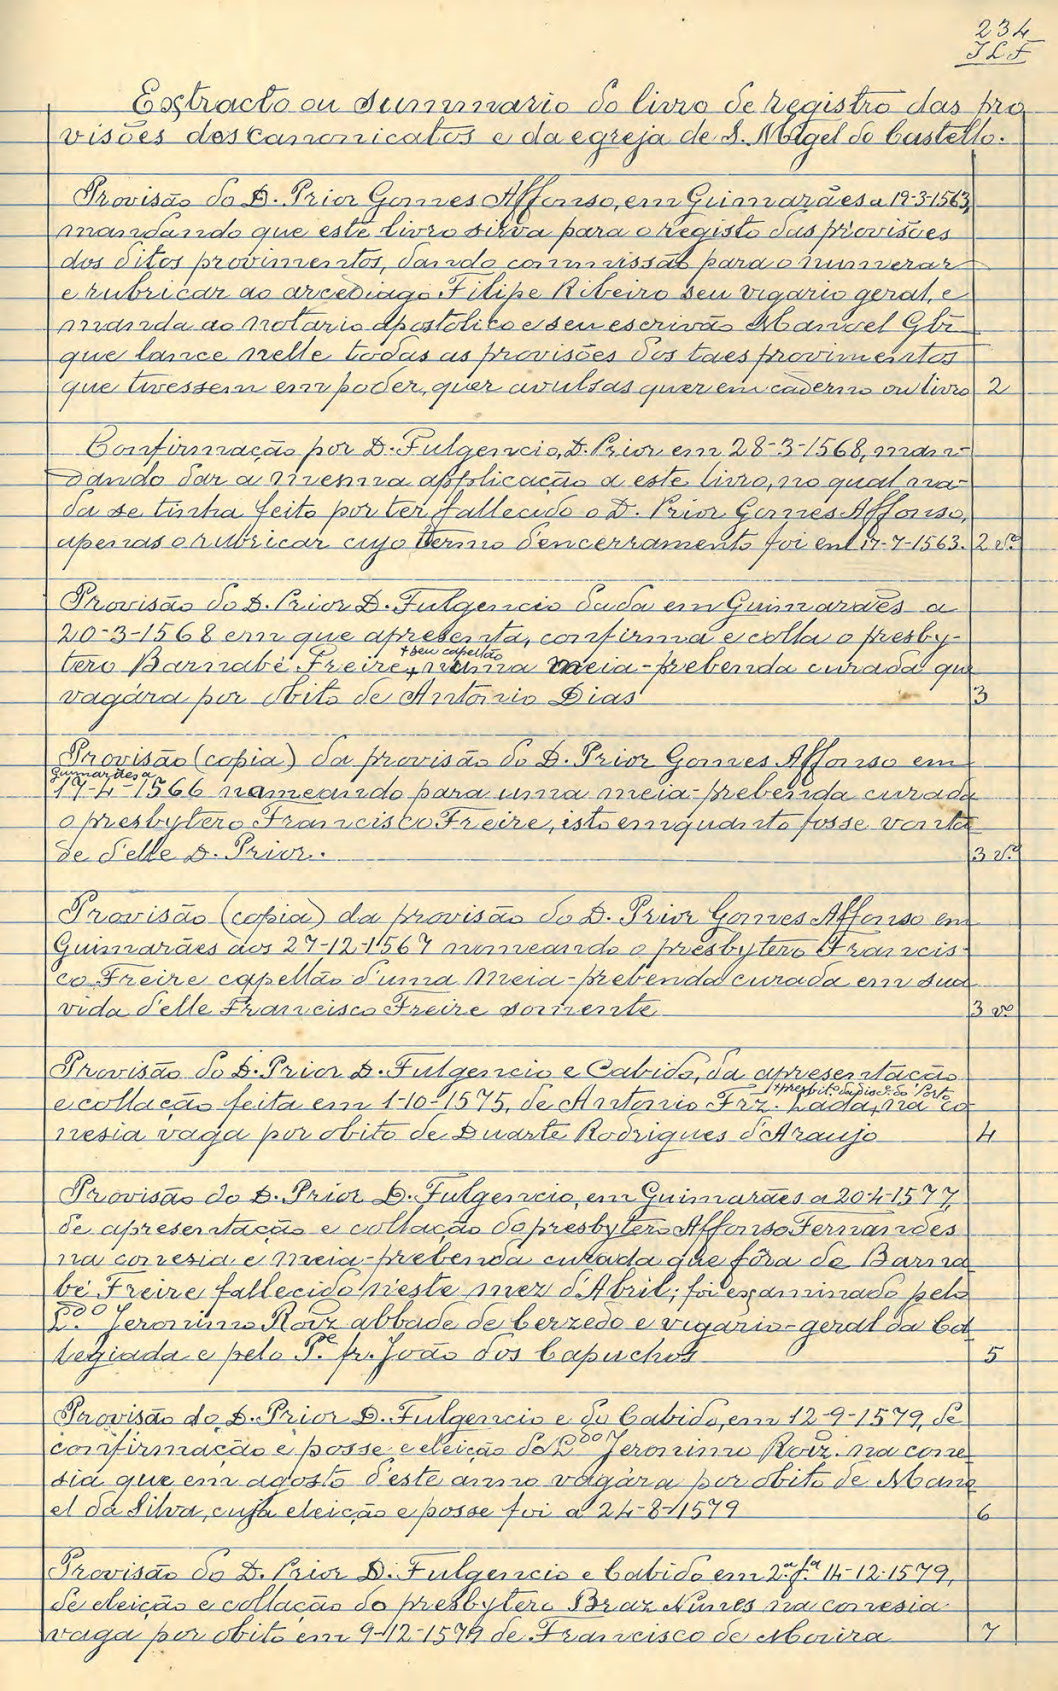 234
J L F
Extracto ou summario do livro de registro das pro
visões dos canonicatos e da egreja de S. Migel do Castello.
Provisão do D. Prior Gomes Affonso, em Guimarães a 19-3-1563,
mandando que este livro sirva para o registo das provisões
dos ditos provimentos, dando commissão para o numerar
e rubricar ao arcediago Filipe Ribeiro seu vigario geral, e
manda ao notario apostolico e seu escrivão Manoel Glz
que lance nelle todas as provisões dos taes provimentos
que tivessem em poder, quer avulsas quer em caderno ou livro 2
Confirmação por D. Fulgencio, D. Prior em 28-3-1568, man-
dando dar a mesma applicação a este livro, no qual na-
da se tinha feito por ter fallecido o D. Prior Gomes Affonso,
apenas o rubricar cujo termo d'encerramento foi em 17-7-1563. 2 vº
Provisão do D. Prior D. Fulgencio dada em Guimarães a
20-3-1568 em que apresenta, confirma e colla o presby-
+ seu capellão
tero Barnabé Freire, + numa meia-prebenda curada que
vagára por obito de Antonio Dias 3
Provisão (copia) da provisão do D. Prior Gomes Affonso em
Guimarães a
17-4-1566 nomeando para uma meia-prebenda curada
o presbytero Francisco Freire, isto emquanto fosse vonta
de d'elle D. Prior. 3 vº
Provisão (copia) da provisão do D. Prior Gomes Affonso em
Guimarães aos 27-12-1567 nomeando o presbytero Francis-
co Freire capellão d'uma meia-prebenda curada em sua
vida d'elle Francisco Freire somente 3 vº
Provisão do D. Prior D. Fulgencio e Cabido, da apresentação
+ presbit.º da dioc.e do Porto
e collação feita em 1-10-1575, de Antonio Frz. Lada, + na co
nesia vaga por obito de Duarte Rodrigues d'Araujo 4
Provisão do D. Prior D. Fulgencio, em Guimarães a 20-4-1577,
de apresentação e collação do presbytero Affonso Fernandes
na conesia e meia-prebenda curada que fôra de Barna
bé Freire fallecido n'este mez d'Abril; foi examinado pelo
L.do Jeronimo Roiz abbade de Cerzedo e vigario-geral da Col
legiada e pelo P.e fr. João dos Capuchos 5
Provisão do D. Prior D. Fulgencio e do Cabido, em 12-9-1579, de
confirmação e posse e eleição do L.do Jeronimo Roiz. na cone
sia que em agosto d'este anno vagára por obito de Mano
el da Silva, cuja eleição e posse foi a 24-8-1579 6
Provisão do D. Prior D. Fulgencio e Cabido em 2.ª f.ª 14-12-1579,
de eleição e collação do presbytero Braz Nunes na conesia
vaga por obito em 9-12-1579 de Francisco de Moura 7